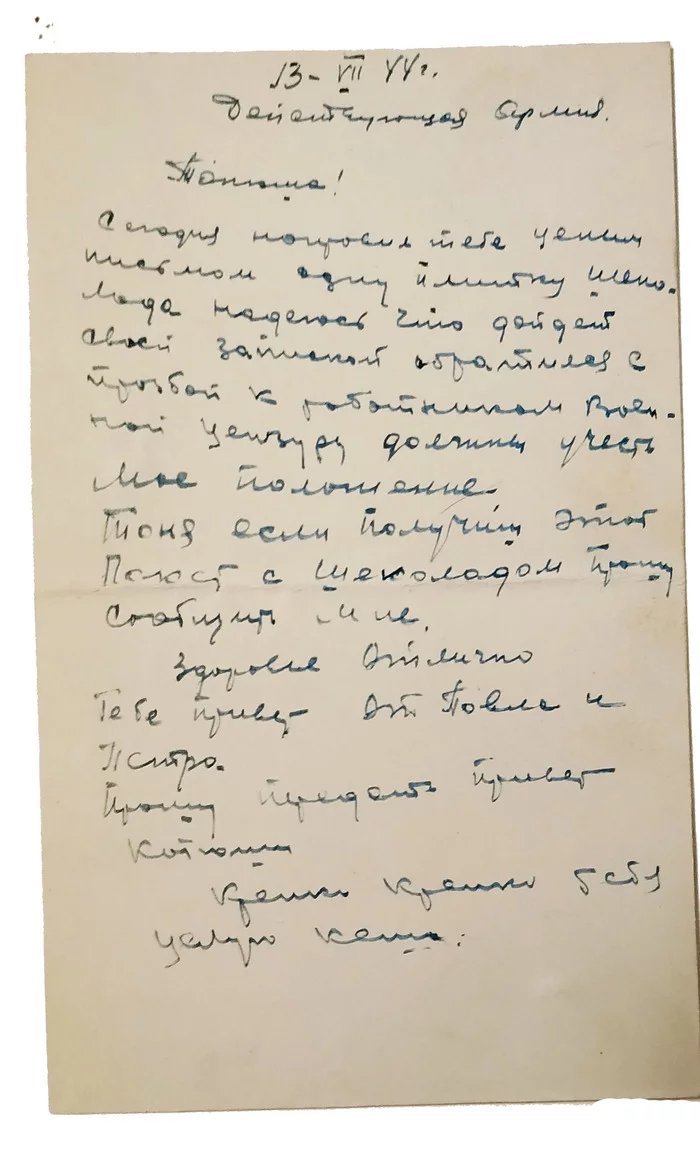 13-VII 44г.
Действующая Армия.
Танюша!
Сегодня направил тебе ценным
письмом одну плитку шеко-
лада надеюсь что дойдет
своей запиской обратился с
прозбой к работником воен-
ной цензуру должны учесть
мое положение.
Тоня если получишь этот
пакет с шеколадом прошу
сообщить мне.
Здоровье отлично
Тебе привет от Павла и
Петра.
Прошу передать привет
Катюши
крепко крепко тебя
целую Кеша.